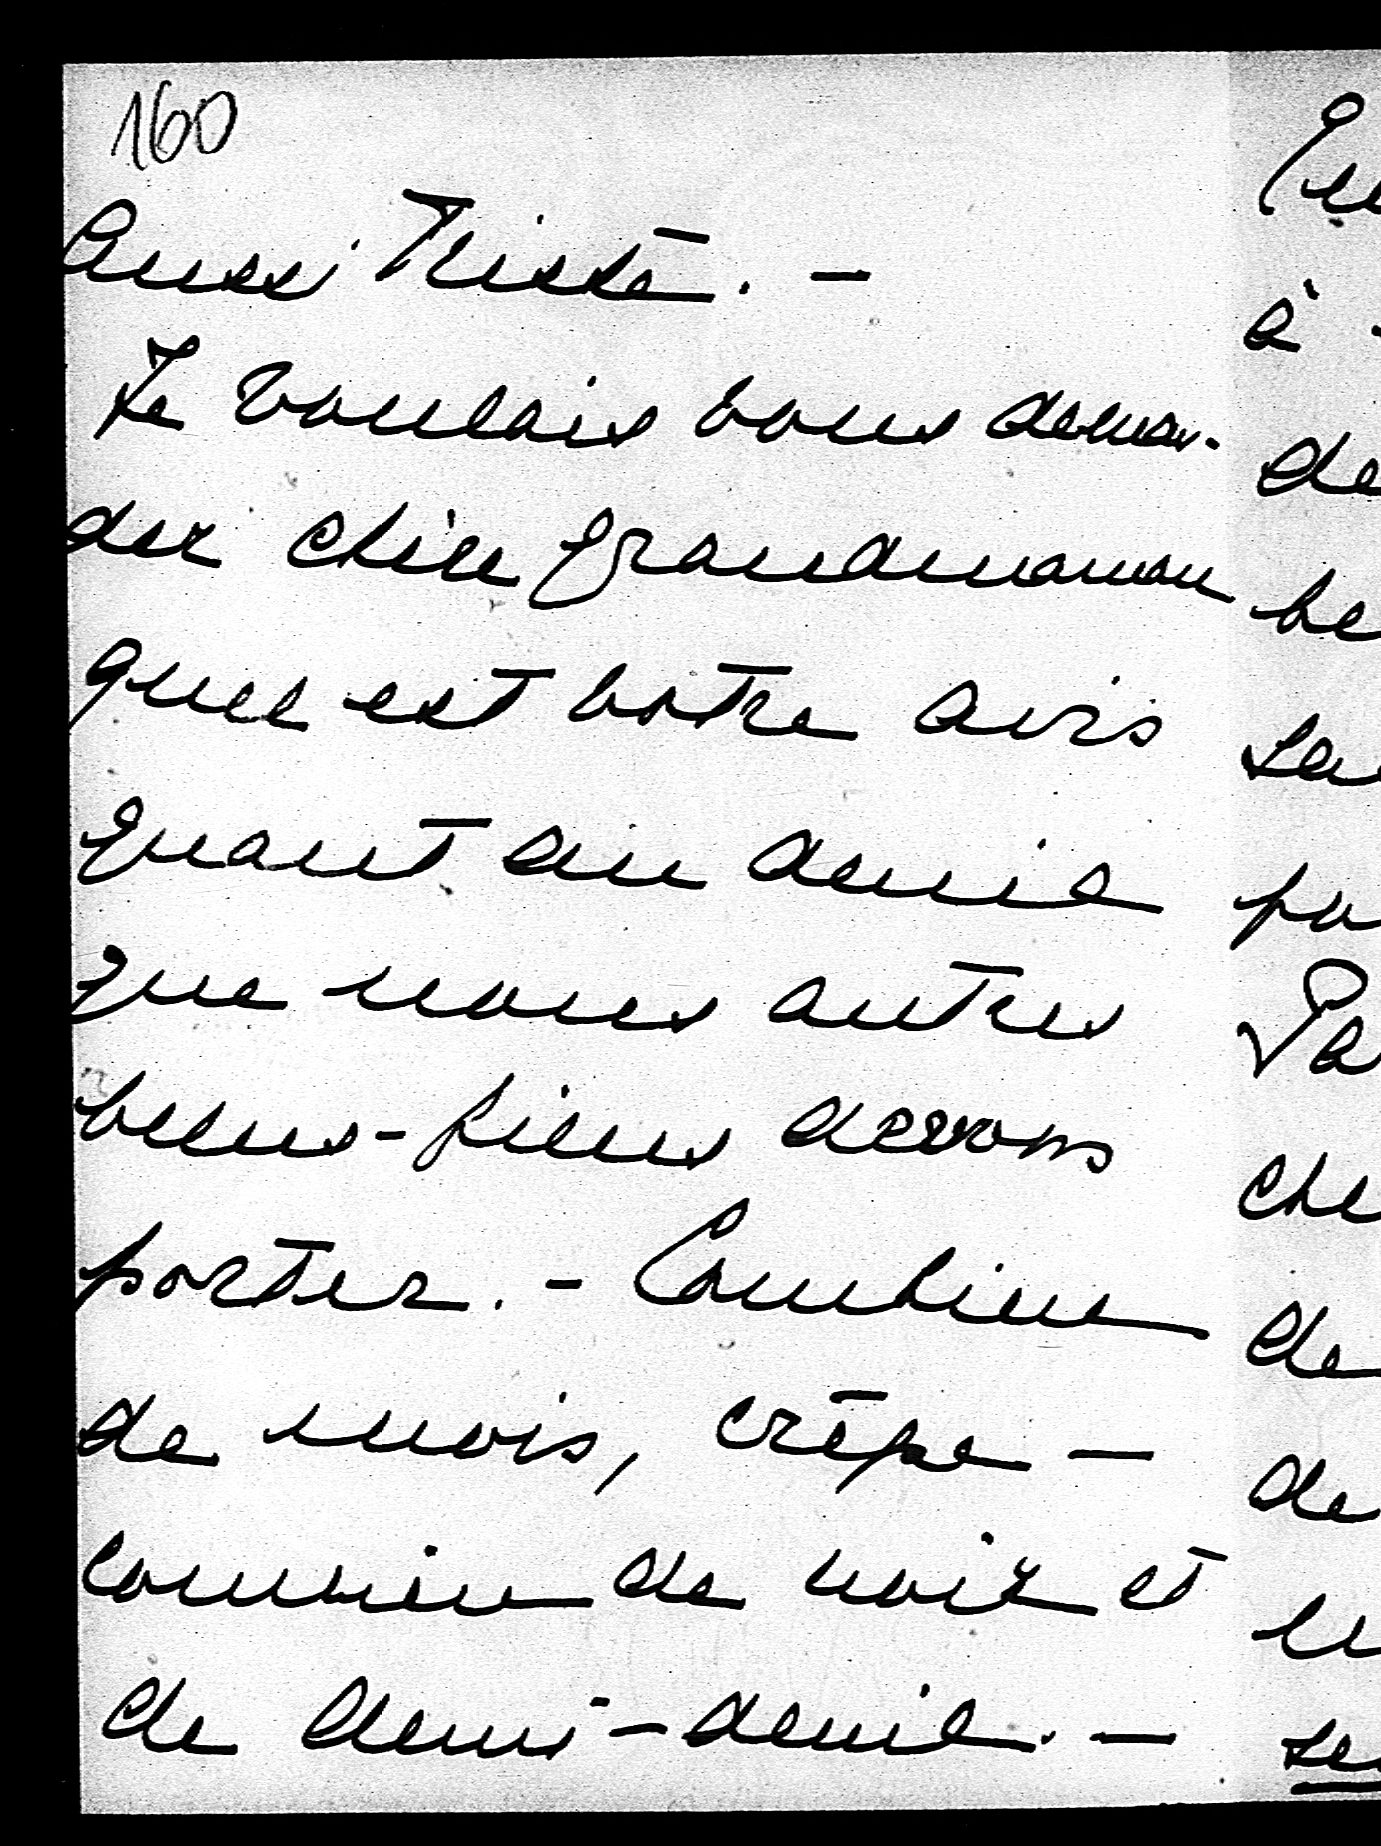 160
Aussi triste. -
Je voulais vous deman-
der chère Grandmaman
quel est votre avis
quant au deuil
que nous autres
beaux-fils devons
porter. - Combien
de mois, crêpe -
combien de noir et
de demi-deuil. -
à
de